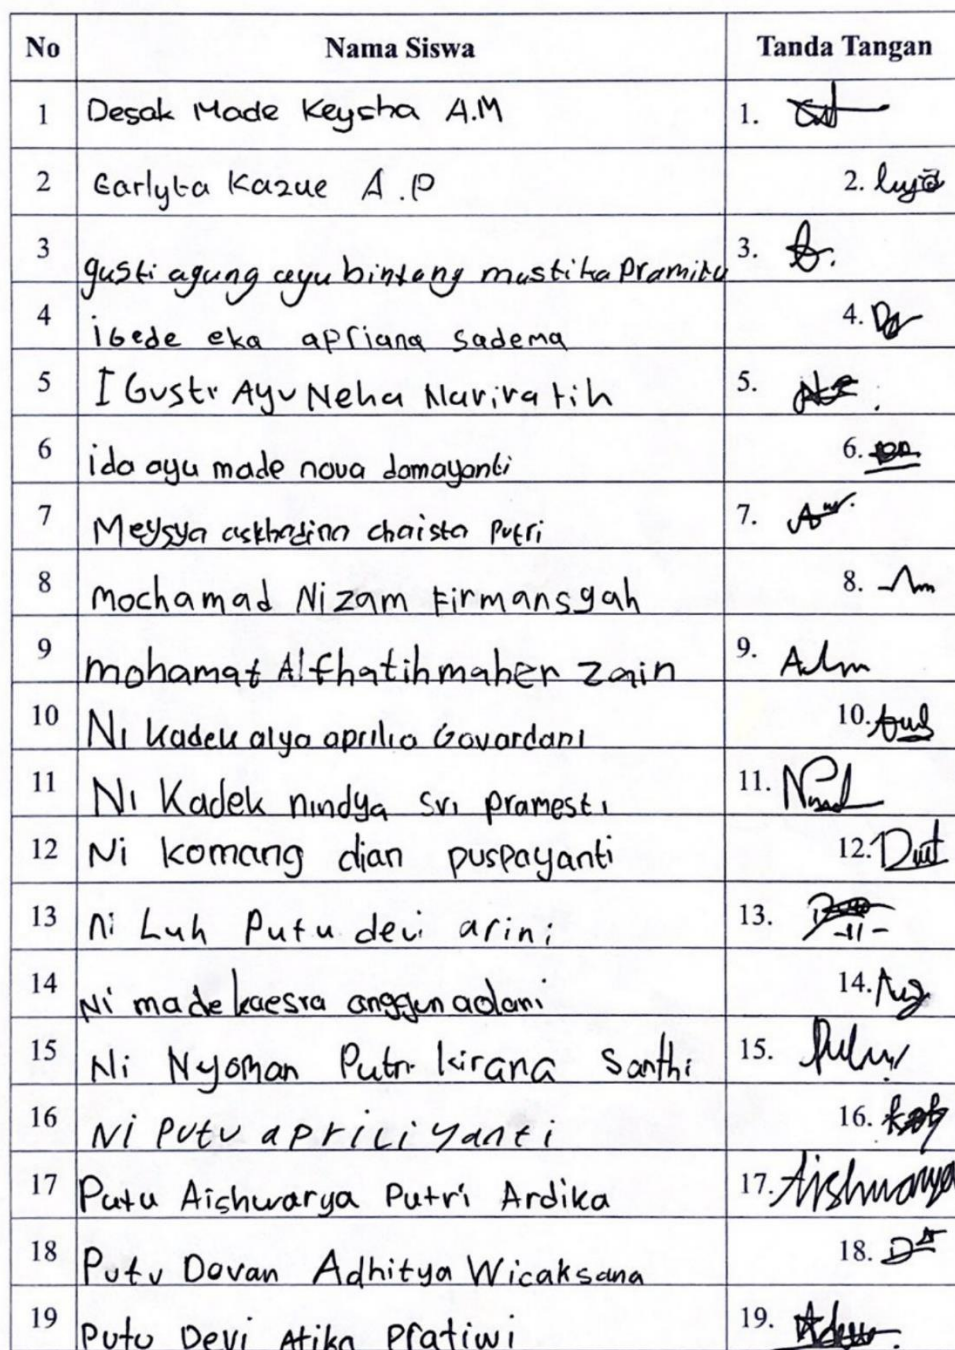 No Nama Siswa Tanda Tangan
1 Desak Made Keysha A.M 1.
2 Earlyta Kazue A.P 2.
3 gusti agung ayu bintang mustika Pramitu 3.
4 i Gede eka apriana sadema 4.
5 I Gusti Ayu Neha Nariratih 5.
6 ida ayu made nova damayanti 6.
7 Meysya askhadina chaista Putri 7.
8 mochamad Nizam Firmansyah 8.
9 mohamat Alfhatih maher zain 9.
10 Ni Kadek alya aprilia Govardani 10.
11 Ni Kadek nindya sri pramesti 11.
12 Ni komang dian puspayanti 12.
13 ni Luh Putu devi arini 13.
14 Ni made kaesra anggun adani 14.
15 Ni Nyoman Putri kirana Santhi 15.
16 Ni Putu apriliyanti 16.
17 Putu Aishwarya Putri Ardika 17. Aishwarya
18 Putu Davan Adhitya Wicaksana 18.
19 Putu Devi Atika Pratiwi 19.